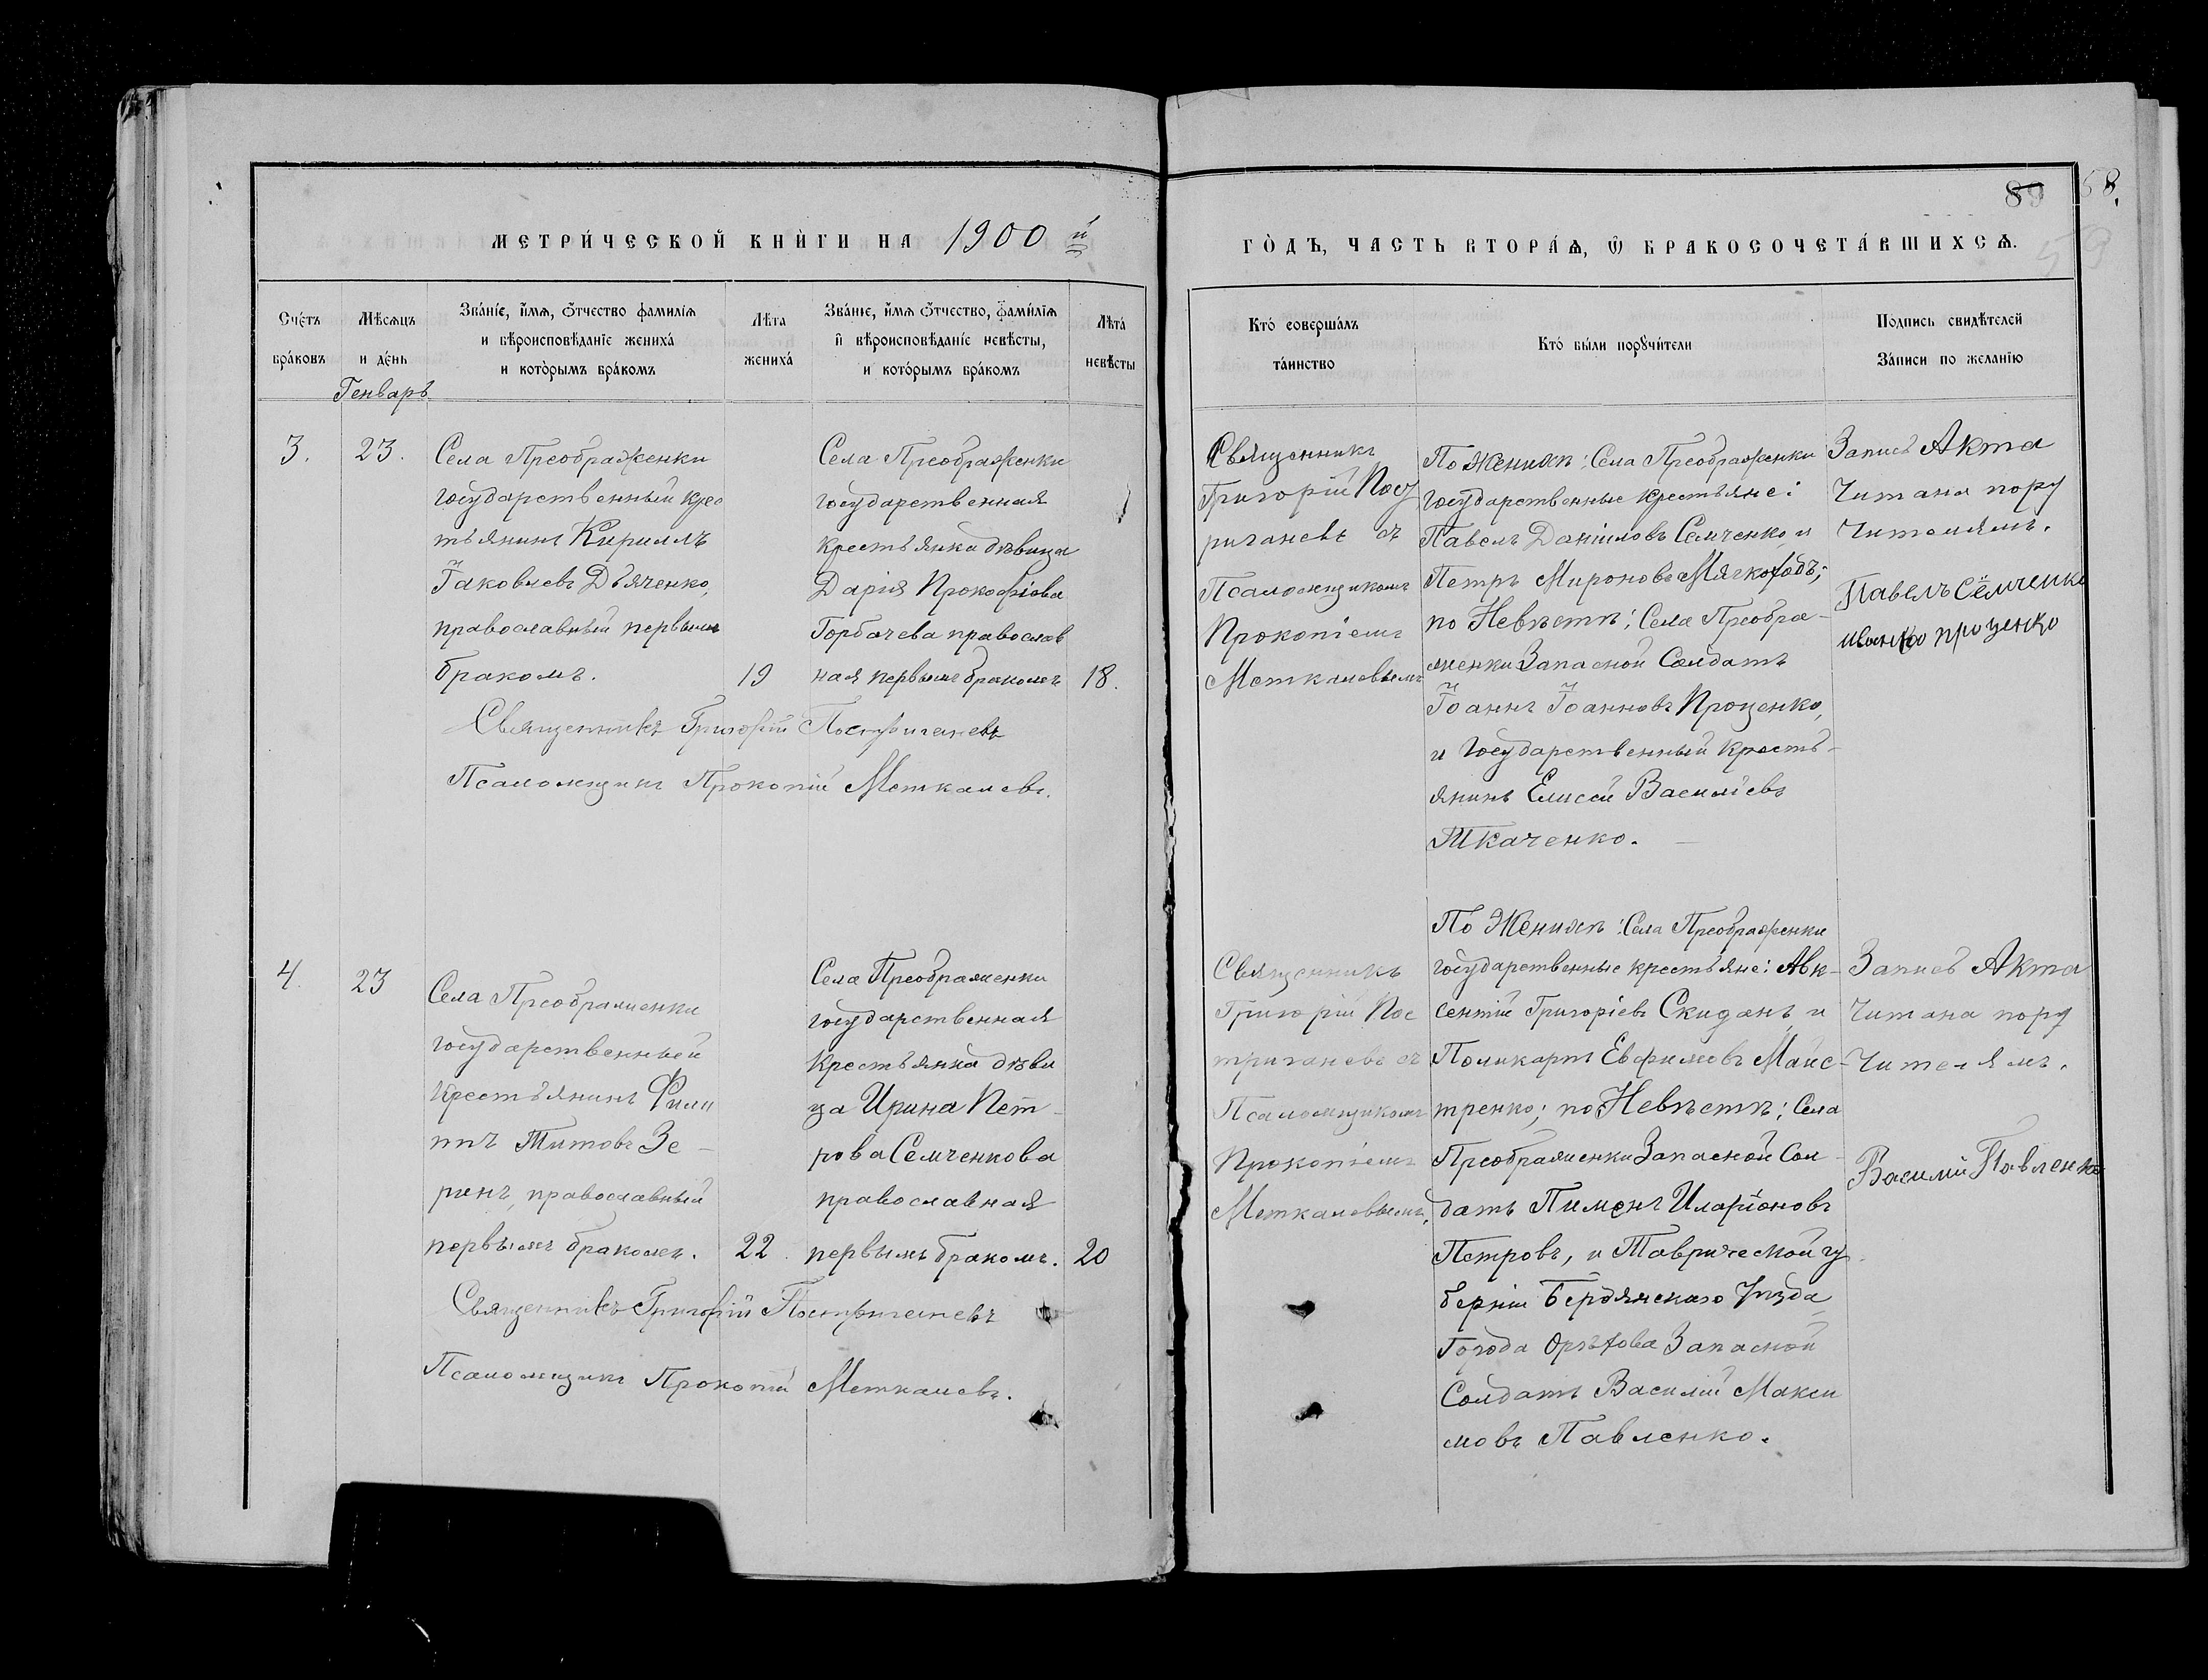 89 58.
59
МЕТРИ́ЧЕСКОЙ КНЍГИ НА 1900 й
ГО̀ДЪ, ЧАСТЬ ВТОРА́Ѧ, Ѿ БРАКОСОЧЕТА́ВШИХСѦ.
Сче́тъ
бра́ковъ
Мѣ́сѧцъ
и де́нь
Генварь
Зва́нїе, и́мѧ, ѻтчество фамилїѧ
и вѣроисповѣданїе жениха́
и кото́рымъ бра́комъ
Лѣта
жениха́
Зва́нїе, и́мѧ ѻтчество, фами́лїѧ
и вѣроисповѣда́нїе невѣ́сты,
и кото́рымъ бра́комъ
Лѣта́
невѣ́сты
Кто́ соверша́лъ
та́инство
Кто́ бы́ли порꙋчи́тели
По́дпись свидѣ́телей
За́писи по жела́нїю
3.
23.
Села Преображенки
государственный крес
тьянинъ Кириллъ
Іаковлевъ Дьяченко,
православный первымъ
бракомъ.
19
Села Преображенки
государственная
крестьянка дѣвица
Дарія Прокофіова
Горбачева православ
ная первымъ бракомъ
18.
Священникъ Григорій Постригачевъ
Псаломщикъ Прокопій Меткалевъ.
Священникъ
Григорій Пос
ригачевъ съ
Псаломщикомъ
Прокопіемъ
Меткалевымъ
По Женихѣ: Села Преображенки
государственные крестьяне:
Павелъ Даніиловъ Семченко и
Петръ Мироновъ Мягкоходъ;
по Невѣстѣ: Села Преобра-
женки Запасной Солдатъ
Іоаннъ Іоанновъ Проценко,
и Государственный кресть-
янинъ Елисей Василіевъ
Ткаченко.
Запись Акта
Читана пору
Чителямъ.
Павелъ Семченко
иванъ проценко
4.
23
Села Преображенки
государственный
Крестьянинъ Фили
ппъ Титовъ Зе-
ринъ, православный
первымъ бракомъ.
22
Села Преображенки
государственная
Крестьянка дѣви
ца Ирина Пет-
рова Семченкова
православная
первымъ бракомъ.
20
Священникъ Григорій Постригачевъ
Псаломщикъ Прокопій Меткалевъ.
Священникъ
Григорій Пос
тригачевъ съ
Псаломщикомъ
Прокопіемъ
Меткалевымъ.
По Женихѣ: Села Преображенки
государственные крестьяне: Авк-
сентій Григоріевъ Скиданъ, и
Поликарпъ Евфимовъ Майс-
тренко; по Невѣстѣ: Села
Преображенки Запасной Сол-
датъ Пименъ Иларіоновъ
Петровъ, и Таврической гу
берніи Бердянскаго Уѣзда
Города Орѣхова Запасной
Солдатъ Василій Макси
мовъ Павленко.
Запись Акта
Читана пору
Чителямъ.
Василий Павленко